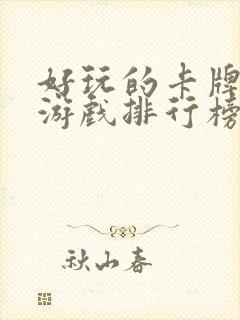 好玩的卡牌
游戏排行榜
秋山春